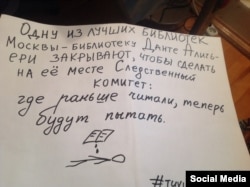 Одну из лучших библиотек
Москвы - библиотеку Данте Алигь-
ери закрывают, чтобы сделать
на её месте Следственный
комитет:
где раньше читали, теперь
будут пытать.
Social Media